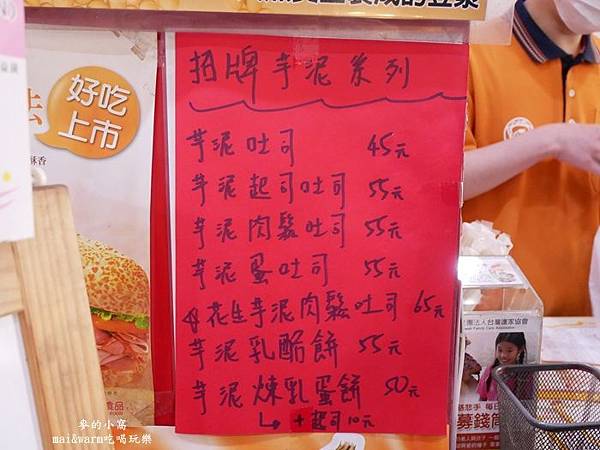 招牌芋泥系列
芋泥吐司 45元
芋泥起司吐司 55元
芋泥肉鬆吐司 55元
芋泥蛋吐司 55元
花生芋泥肉鬆吐司 65元
芋泥乳酪餅 55元
芋泥煉乳蛋餅 50元
↳ +起司10元
好吃
上市
酥香
團法人台灣護家協會
募錢筒
食品
麥的小窩
mai&warm吃喝玩樂